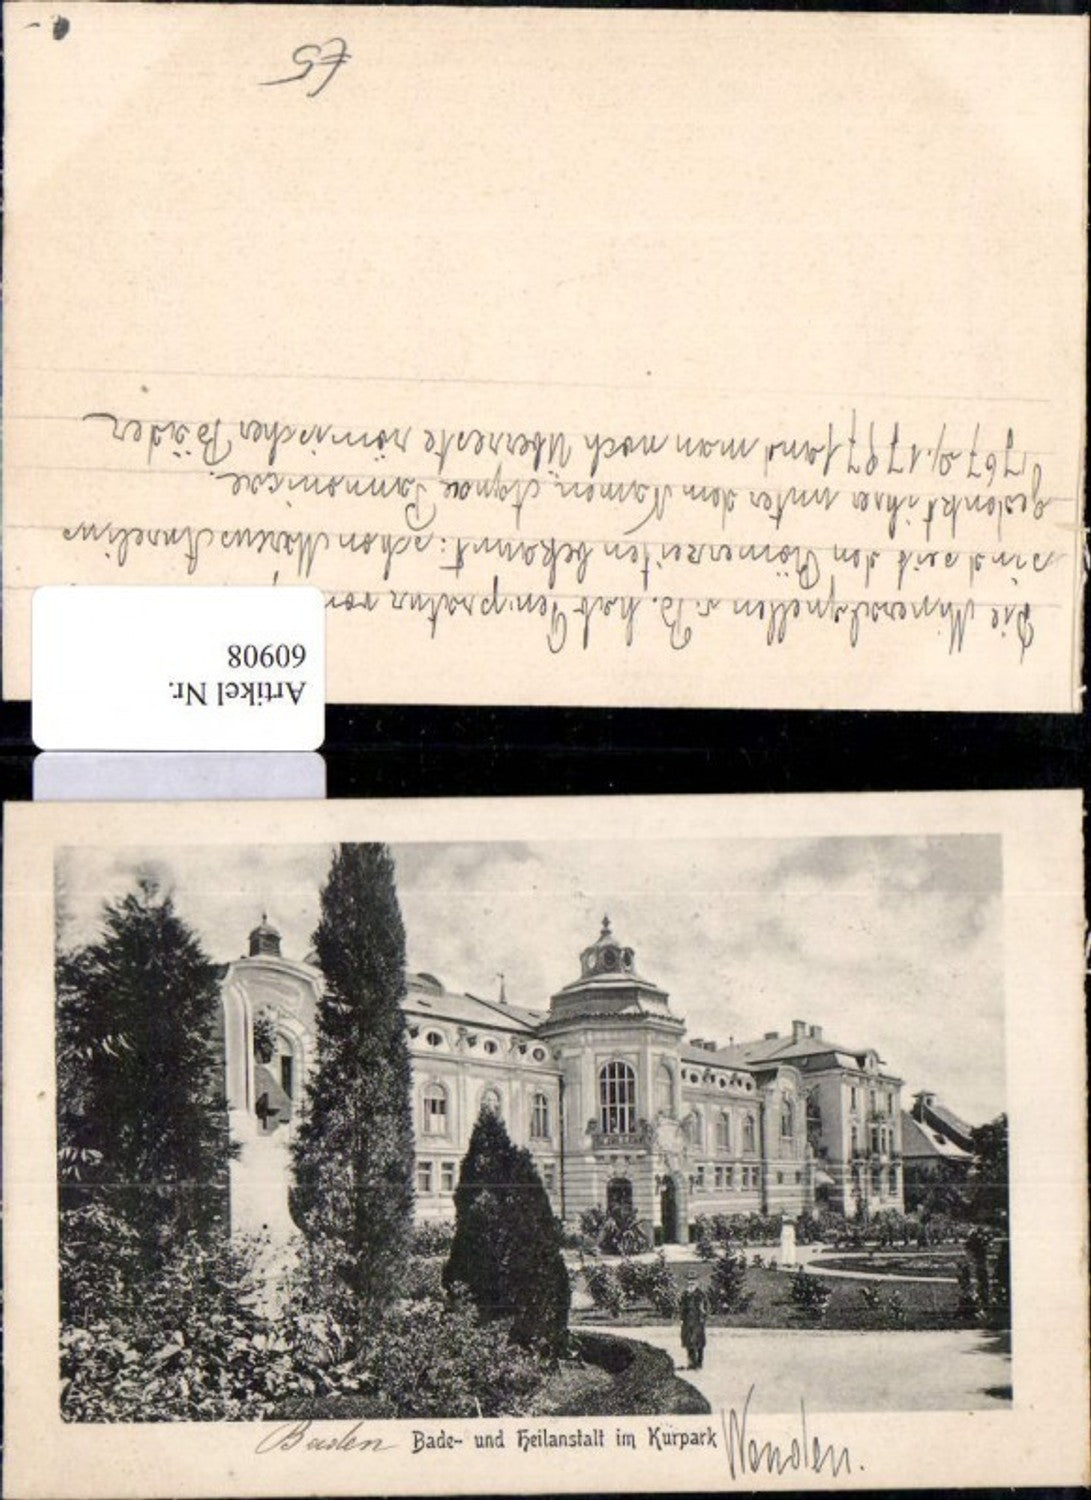 €5
Die Mineralquellen v. B. hab. Temperatur von
sind seit den Römerzeiten bekannt: schon Marcus Aurelius
gedenkt ihrer unter dem Namen Aquae Pannonicae.
1767 u. 1797 fand man noch Überreste römischer Bäder
Artikel Nr.
60908
Baden Bade- und Heilanstalt im Kurpark